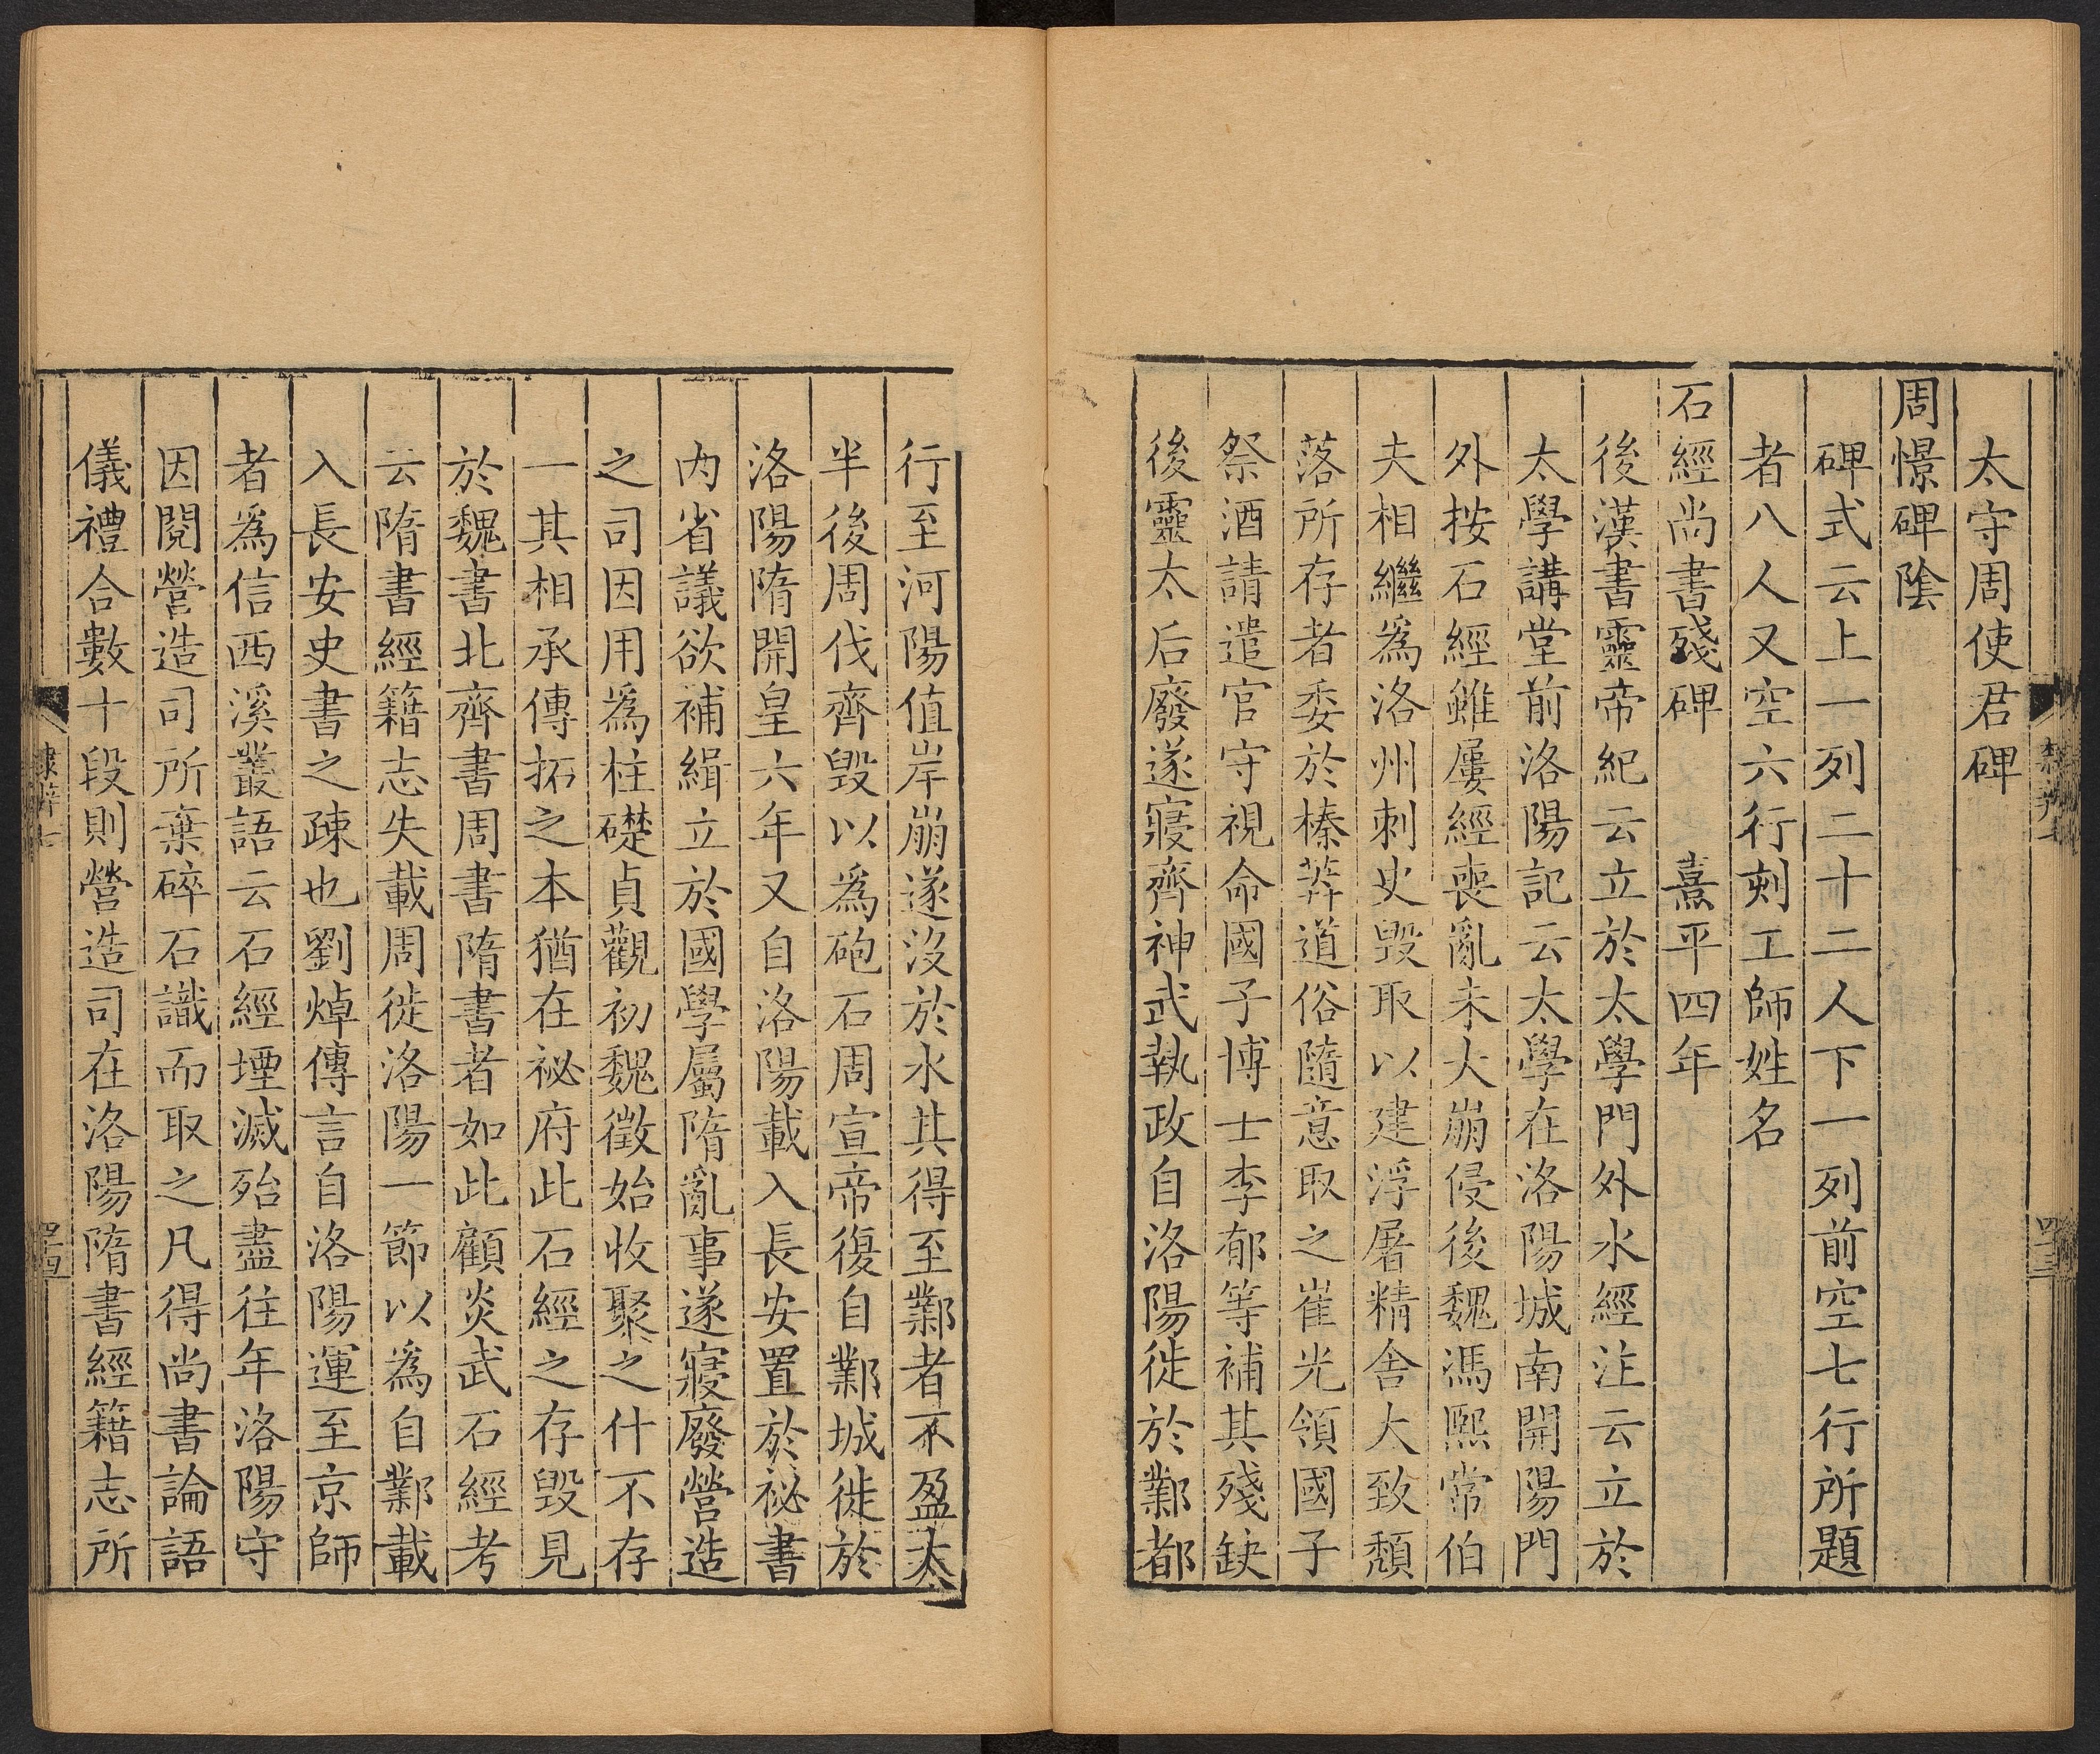 太守周使君碑
周憬碑陰
碑式云上一列二十二人下一列前空七行所題
者八人又空六行刻工師姓名
石經尚書殘碑　熹平四年
後漢書靈帝紀云立於太學門外水經注云立於
太學講堂前洛陽記云太學在洛陽城南開陽門
外按石經雖屢經喪亂未大崩侵後魏馮熙常伯
夫相繼爲洛州刺史毀取以建浮屠精舍大致頹
落所存者委於榛莽道俗隨意取之崔光領國子
祭酒請遣官守視命國子博士李郁等補其殘缺
後靈太后廢遂寢齊神武執政自洛陽徙於鄴都
行至河陽值岸崩遂沒於水其得至鄴者不盈太
半後周伐齊毀以爲砲石周宣帝復自鄴城徙於
洛陽隋開皇六年又自洛陽載入長安置於祕書
內省議欲補緝立於國學屬隋亂事遂寢廢營造
之司因用爲柱礎貞觀初魏徵始收聚之什不存
一其相承傳拓之本猶在祕府此石經之存毀見
於魏書北齊書周書隋書者如此顧炎武石經考
云隋書經籍志失載周徙洛陽一節以爲自鄴載
入長安史書之疎也劉焯傳言自洛陽運至京師
者爲信西溪叢語云石經堙滅殆盡往年洛陽守
因閱營造司所棄碎石識而取之凡得尚書論語
儀禮合數十段則營造司在洛陽隋書經籍志所
隸辨七